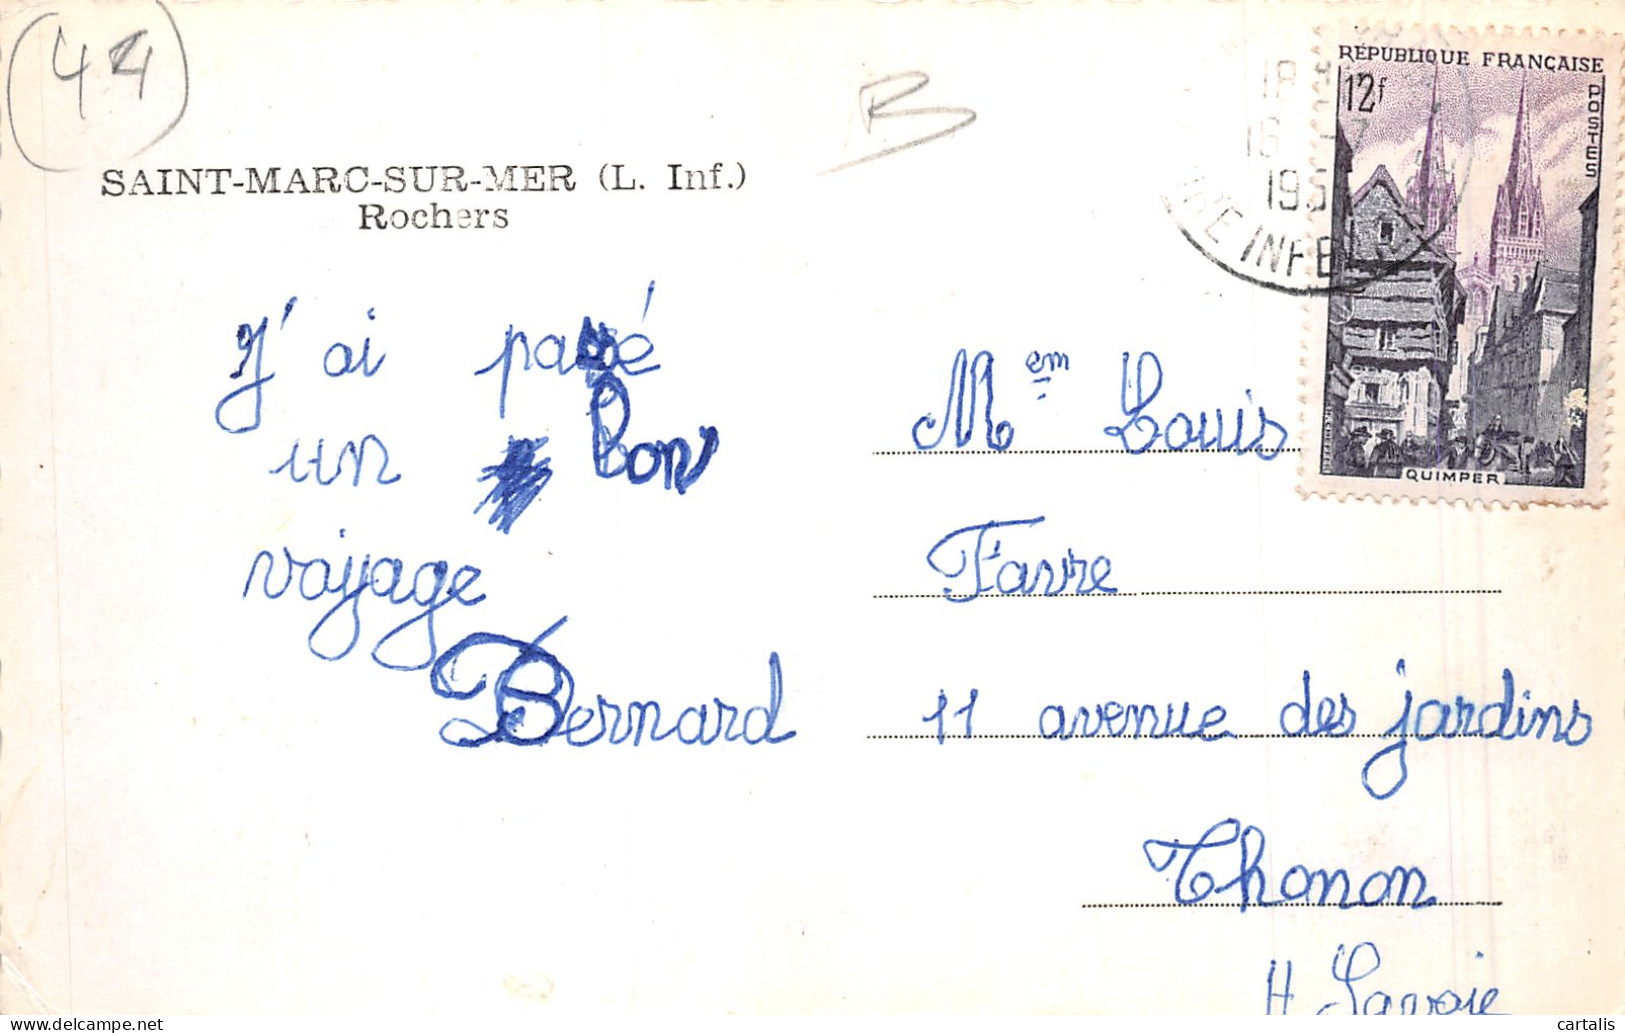 (44)
B
SAINT-MARC-SUR-MER (L. Inf.)
Rochers
J'ai passé
un bon
voyage
Bernard
RÉPUBLIQUE FRANÇAISE
12f
POSTES
QUIMPER
18 H
16 -7
195
NE INFRE
Mem Louis
Favre
11 avenue des jardins
Thonon
H. Savoie
cartalis